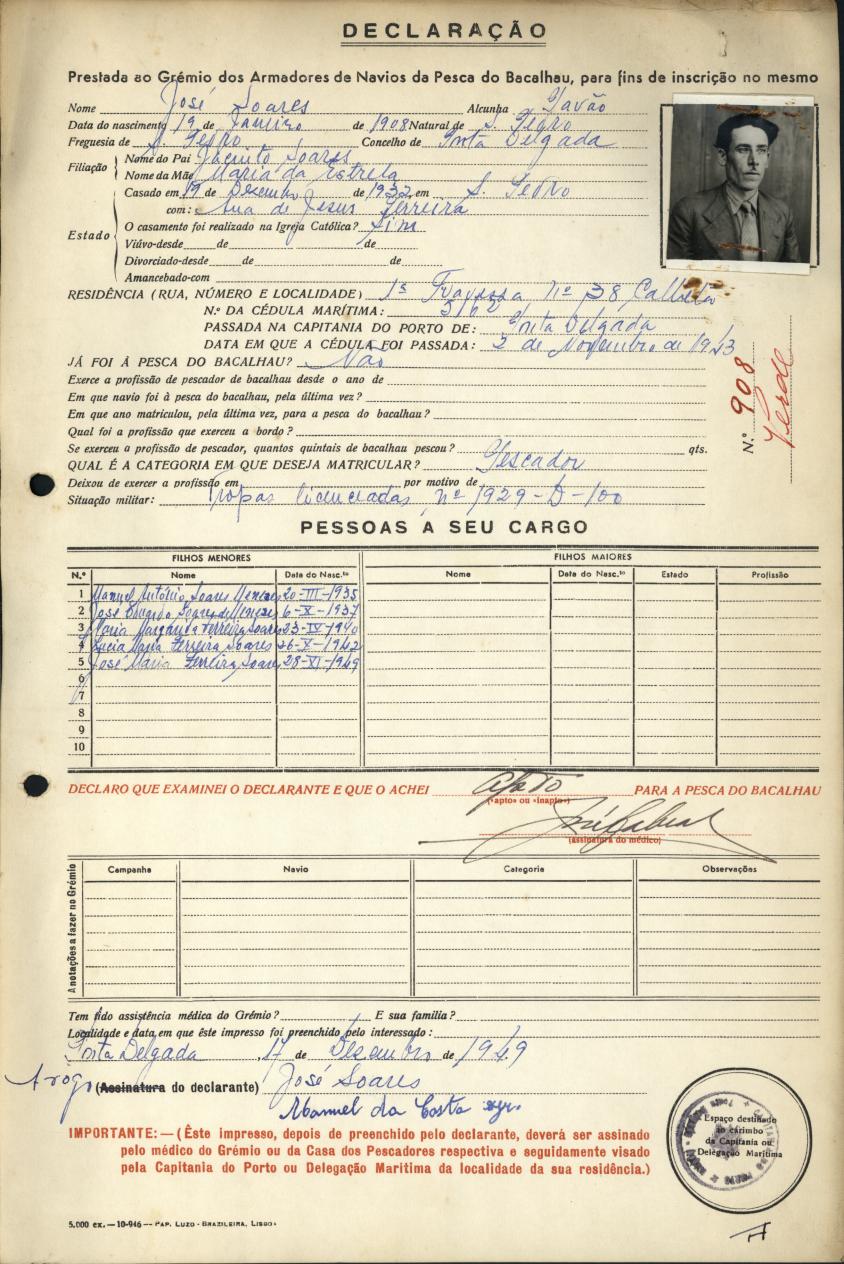 DECLARAÇÃO
Prestada ao Grémio dos Armadores de Navios da Pesca do Bacalhau, para fins de inscrição no mesmo
Nome José Soares Alcunha Gavão
Data do nascimento 19 de Janeiro de 1908 Natural de S. Pedro
Freguesia de S. Pedro Concelho de Ponta Delgada
Filiação Nome do Pai Jacinto Soares
Nome da Mãe Maria da Estrela
Casado em 19 de Dezembro de 1932 em S. Pedro
com: Ana de Jesus Ferreira
Estado O casamento foi realizado na Igreja Católica? Sim
Viúvo-desde de de
Divorciado-desde de de
Amancebado-com
RESIDÊNCIA (RUA, NÚMERO E LOCALIDADE) 1ª Travessa nº 38 Calheta
N.º DA CÉDULA MARÍTIMA:
PASSADA NA CAPITANIA DO PORTO DE: Ponta Delgada
DATA EM QUE A CÉDULA FOI PASSADA: 2 de Novembro de 1943
JÁ FOI À PESCA DO BACALHAU? Não
Exerce a profissão de pescador de bacalhau desde o ano de
Em que navio foi à pesca do bacalhau, pela última vez?
Em que ano matriculou, pela última vez, para a pesca do bacalhau?
Qual foi a profissão que exerceu a bordo?
Se exerceu a profissão de pescador, quantos quintais de bacalhau pescou? qts.
QUAL É A CATEGORIA EM QUE DESEJA MATRICULAR? Pescador
Deixou de exercer a profissão em por motivo de
Situação militar: Tropas licenciadas, nº 1929-D-100
N.º 908
Verde
PESSOAS A SEU CARGO
FILHOS MENORES FILHOS MAIORES
N.º Nome Data do Nasc.to Nome Data do Nasc.to Estado Profissão
1 Manuel António Soares Menezes 20-III-1935
2 José Eduardo Soares de Menezes 6-X-1937
3 Maria Margarida Ferreira Soares 23-IV-1940
4 Lucia Maria Ferreira Soares 26-X-1942
5 José Maria Ferreira Soares 28-XI-1949
6
7
8
9
10
DECLARO QUE EXAMINEI O DECLARANTE E QUE O ACHEI apto PARA A PESCA DO BACALHAU
(«apto» ou «inapto»)
(assinatura do médico)
Anotações a fazer no Grémio
Campanha Navio Categoria Observações
Tem tido assistência médica do Grémio? E sua família?
Localidade e data em que êste impresso foi preenchido pelo interessado:
Ponta Delgada, 17 de Dezembro de 1949
A rogo (Assinatura do declarante) José Soares
Manuel da Costa
IMPORTANTE: — (Êste impresso, depois de preenchido pelo declarante, deverá ser assinado
pelo médico do Grémio ou da Casa dos Pescadores respectiva e seguidamente visado
pela Capitania do Porto ou Delegação Marítima da localidade da sua residência.)
Espaço destinado
ao carimbo
da Capitania ou
Delegação Marítima
5.000 ex. — 10-946 — PAP. LUZO-BRAZILEIRA, LISBOA